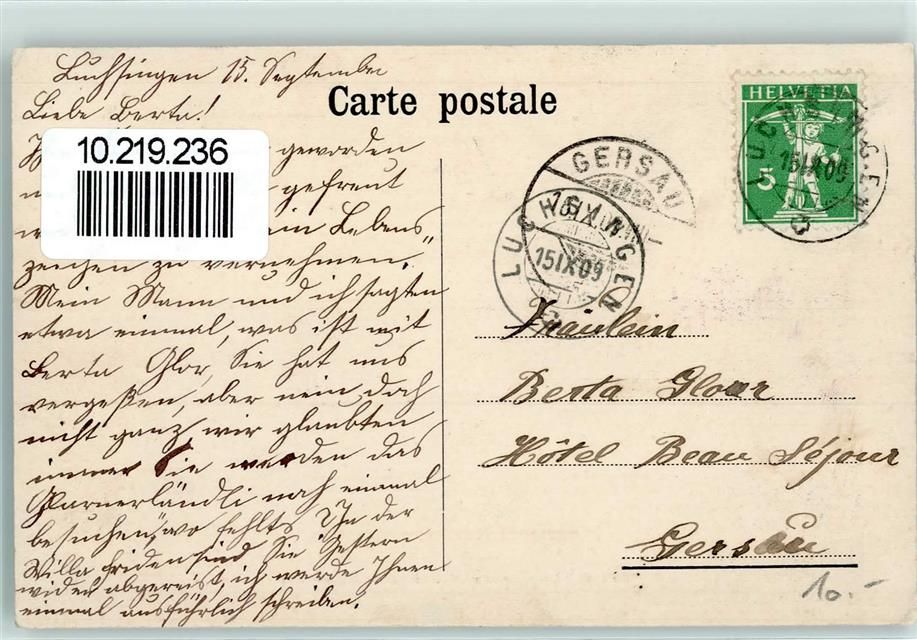 Luchsingen 15. September
Liebe Berta!
10.219.236
geworden
gefreut
ein Lebens
zeichen zu vernehmen.
Mein Mann und ich sagten
etwa einmal, was ist mit
Berta Glor, Sie hat uns
vergeßen, aber nein doch
nicht ganz, wir glaubten
immer Sie werden das
Glarnerländli noch einmal
besuchen, wo fehlts? In der
Villa Friden sind Sie Gestern
wider abgereist, ich werde Ihnen
einmal ausführlich schreiben.
Carte postale
HELVETIA
5
LUCHSINGEN
15 IX 09
GERSAU
LUCHSINGEN
15 IX 09
Fräulein
Berta Gloor
Hôtel Beau Séjour
Gersau
10.-